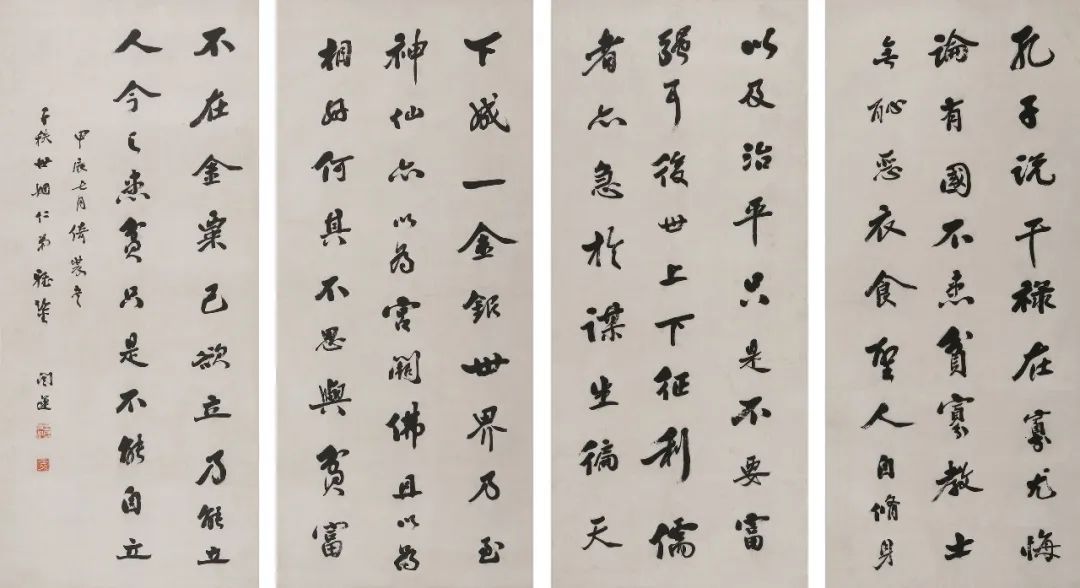 孔子説干祿在寡尤悔
論有國不患貧寡教士
無恥惡衣食聖人自脩身
以及治平只是不要富
强耳後世上下征利儒
者亦急於謀生徧天
下成一金銀世界乃至
神仙亦以為宮闕佛且以為
相好何其不思與貧富
不在金粟己欲立乃能立
人今之患貧只是不能自立
甲辰七月倚裝書
子世姻仁弟雅鑒 闓運